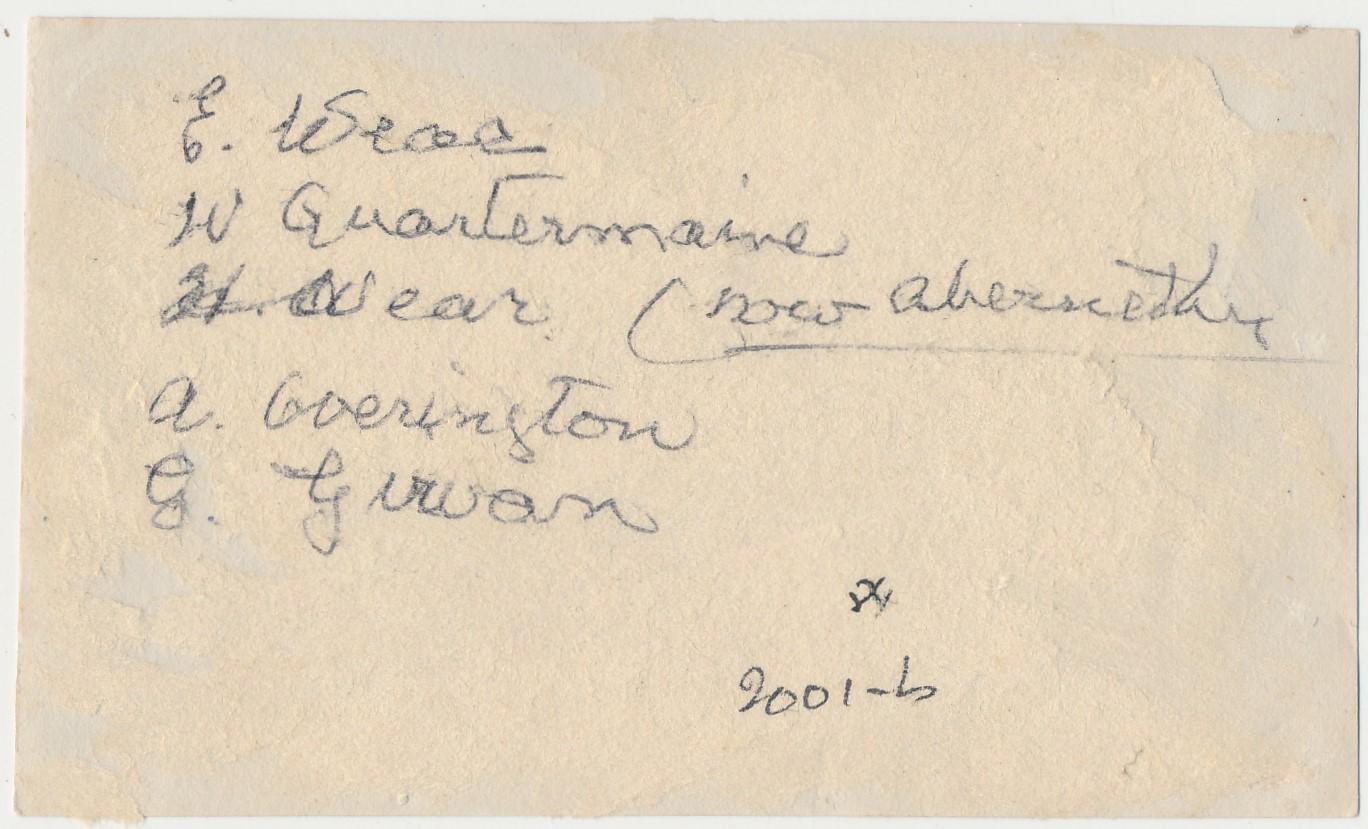 E.
W Quartermaine
Near (now Abernethy
A. Overington
G. Girvan
x
2001-b